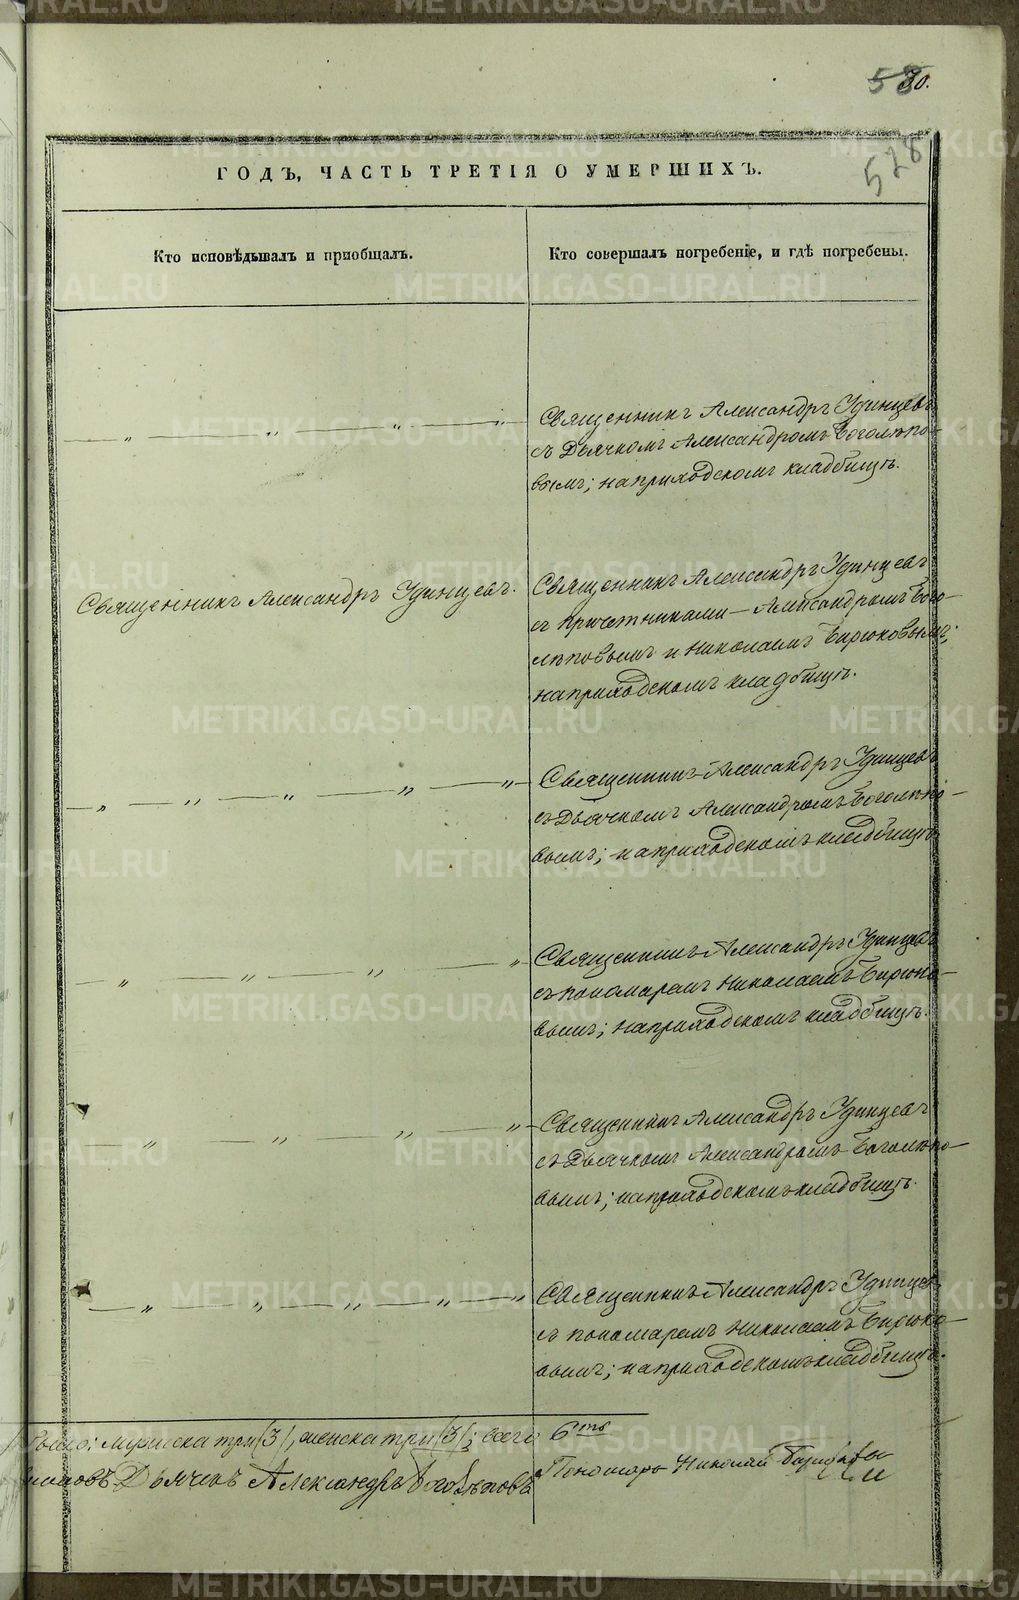 58
30.
528
ГОДЪ, ЧАСТЬ ТРЕТІЯ О УМЕРШИХЪ.
Кто исповѣдывалъ и приобщалъ.
Кто совершалъ погребеніе, и гдѣ погребены.
Священникъ Александръ Удинцевъ
съ Дьячкомъ Александромъ Боголѣпо-
вымъ; на приходскомъ кладбищѣ.
Священникъ Александръ Удинцевъ.
Священникъ Александръ Удинцевъ
съ причетниками – Александромъ Бого-
лѣповымъ и Николаемъ Бирюковымъ;
на приходскомъ кладбищѣ.
Священникъ Александръ Удинцевъ
съ Дьячкомъ Александромъ Боголѣпо-
вымъ; на приходскомъ кладбищѣ.
Священникъ Александръ Удинцевъ
съ пономаремъ Николаемъ Бирюко-
вымъ; на приходскомъ кладбищѣ.
Священникъ Александръ Удинцевъ
съ Дьячкомъ Александромъ Боголѣпо-
вымъ; на приходскомъ кладбищѣ.
Священникъ Александръ Удинцев
съ пономаремъ Николаемъ Бирюко-
вымъ; на приходскомъ кладбищѣ.
мужеска три /3/, женска три /3/; всего 6ть
Дьячекъ Александръ Боголѣповъ
Пономарь Николай Бирюковъ
METRIKI.GASO-URAL.RU